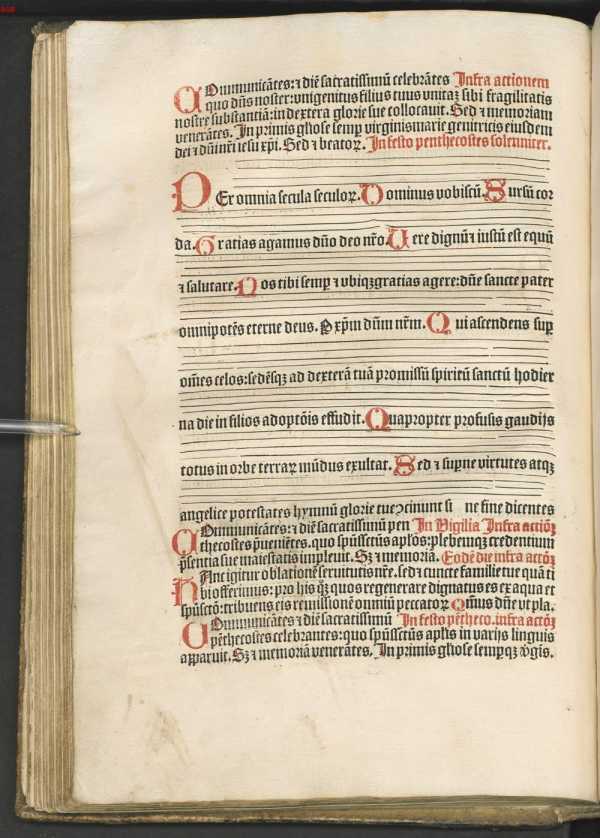 COmmunicãtes: ⁊ diẽ sacratissimũ celebrãtes Infra actionem
quo dñs noster: vnigenitus filius tuus vnitaʒ sibi fragilitatis
nostre substantiã: in dextera glorie sue collocauit. Sed ⁊ memoriam
venerãtes. In primis gl'iose semꝑ virginis marie genitricis eiusdem
dei ⁊ dñi nr̃i iesu xp̃i. Sed ⁊ beatoꝝ. In festo penthecostes solenniter.
PEr omnia secula seculoꝝ. Dominus vobiscũ. Sursũ cor
da. Gratias agamus dño deo nr̃o. Uere dignũ ⁊ iustũ est equũ
⁊ salutare. Nos tibi semꝑ ⁊ vbiqʒ gratias agere: dñe sancte pater
omnipotẽs eterne deus. P xp̃m dñm nr̃m. Qui ascendens suꝑ
om̃es celos: sedẽsqʒ ad dexterã tuã promissũ spiritũ sanctũ hodier
na die in filios adoptõis effudit. Quapropter profusis gaudijs
totus in orbe terraꝝ mũdus exultat. Sed ⁊ suꝑne virtutes atqʒ
angelice potestates hymnũ glorie tue ↄcinunt si ne fine dicentes
COmmunicãtes: ⁊ diẽ sacratissimũ pen In Uigilia Infra actiõꝫ
thecostes p̃ueniẽtes. quo spũssctũs apl'os: plebemqʒ credentium
p̃sentia sue maiestatis impleuit. Sʒ ⁊ memoriã. Eodẽ die infra actõꝫ
HAnc igitur oblationẽ seruitutis nr̃e. sed ⁊ cuncte familie tue quã ti
bi offerimus: pro his qʒ quos regenerare dignatus es ex aqua et
spũsctõ: tribuens eis remissionẽ omniũ peccatoꝝ Qũs dñe vt pla.
COmmunicãtes ⁊ diẽ sacratissimũ In festo pẽtheco. infra actõꝫ
pẽthecostes celebrantes: quo spũssctũs apl'is in varijs linguis
apparuit. Sʒ ⁊ memoriã venerãtes. In primis gl'iose semꝑqʒ v̾gĩs.